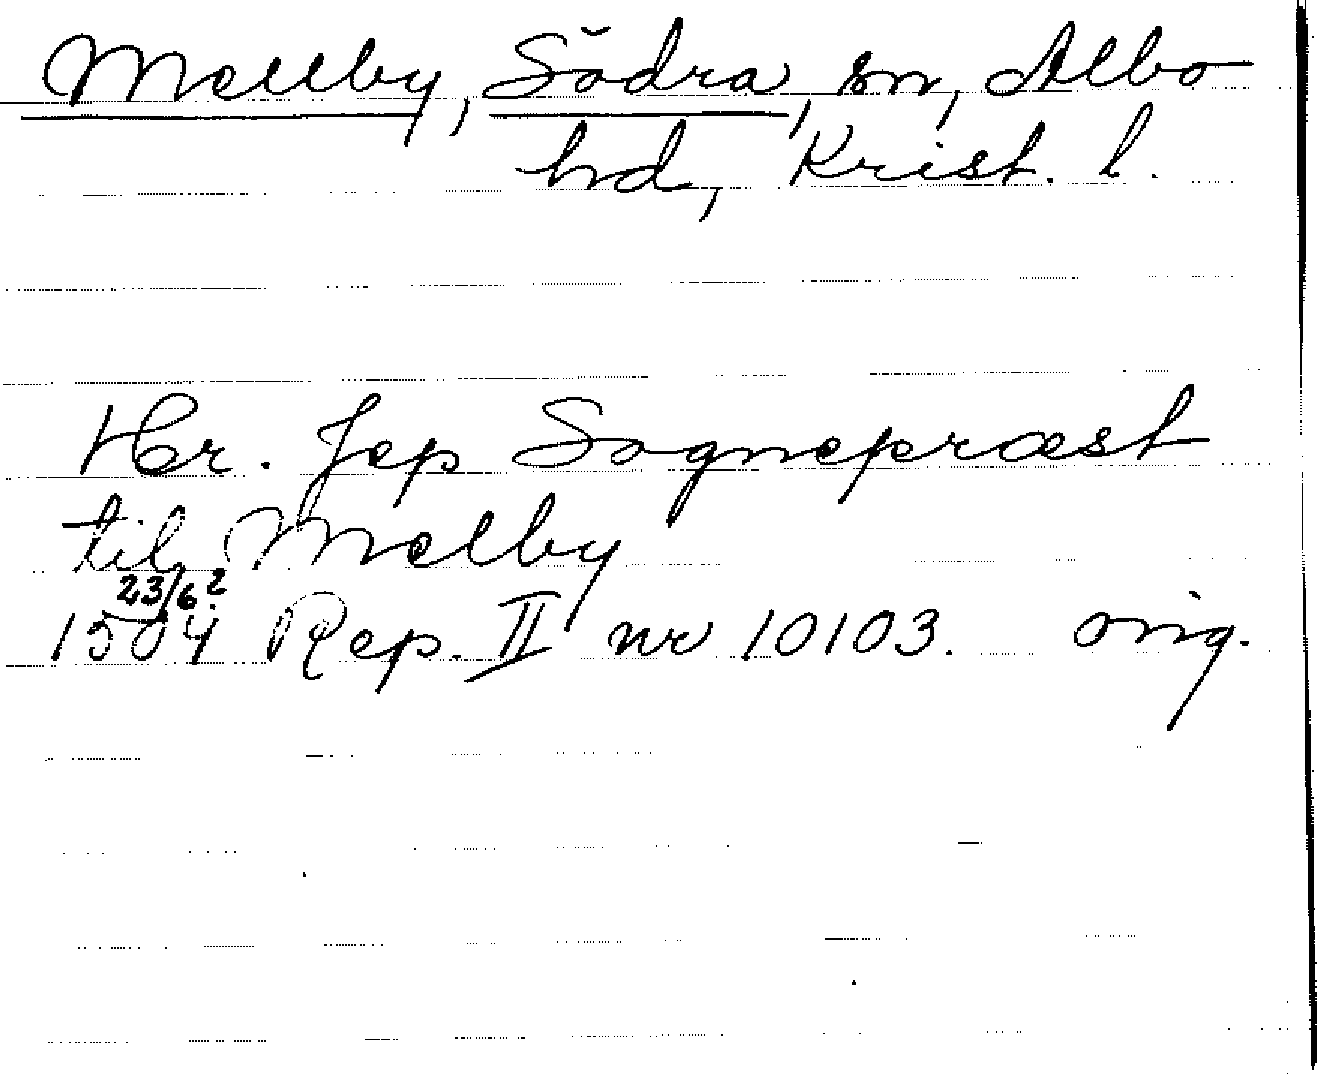 Mellby, Södra, sn, Albo
hd, Krist. l.
Her. Jep Sognepræst
til Melby
23/6?
1504 Rep. II nr 10103. orig.